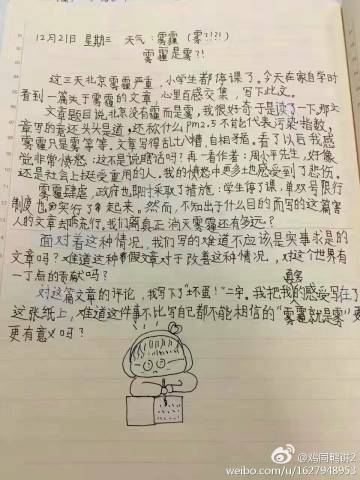 12月21日 星期三 天气：雾霾（雾?!?!）
雾霾是雾?!
这三天北京雾霾严重，小学生都停课了。今天在家自学时
看到一篇关于雾霾的文章，心里百感交集，写下此文。
文章题目说，北京没有霾而是雾。我很好奇于是读了一下，那文
章写的意还头头是道，还称什么PM2.5不能代表污染指数，
雾霾只是雾等等，文章写得乱七八糟，自相矛盾。看了以后我感
觉非常愤怒：这不是说瞎话吗？再一看作者：周小平先生，好像
还是社会上挺受重用的人，我的愤怒中更多地感受到了悲伤。
雾霾肆虐，政府也及时采取了措施：学生停课，单双号限行
制度也实行了起来。然而，不知出于什么目的而写的这篇害
人的文章却能流行。我们离真正消灭雾霾还有多远？
面对着这种情况，我们写的难道不应该是实事求是的
文章吗？难道这种假文章对于改善这种情况，对这个世界有
一丁点的贡献吗？
对这篇文章的评论，我写下了“坏蛋！”二字。我把我的真实感受写在了
这张纸上，难道这件事不比写自己都不能相信的“雾霾就是雾”更
更有意义吗？
@鸡同鸭讲2
weibo.com/u/1627948953